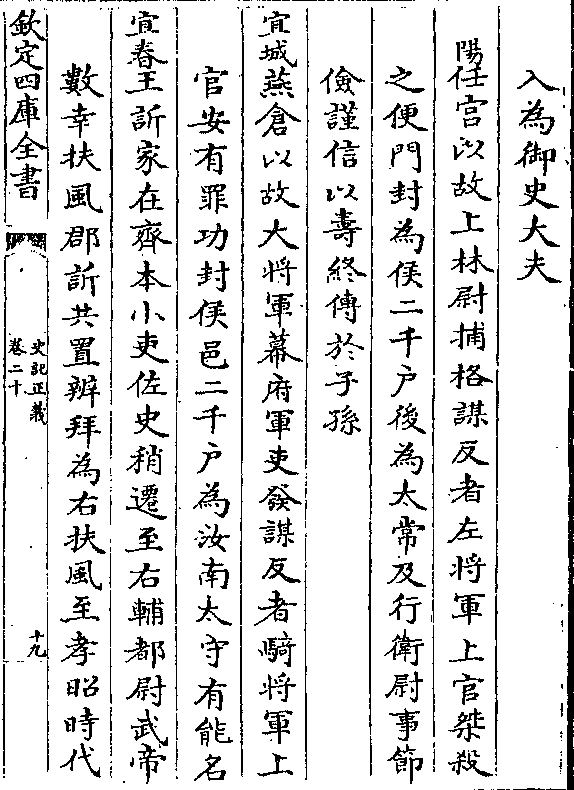 入為御史大夫
陽任宫以故上林尉捕格謀反者左將軍上官桀殺
之便門封為侯二千户後為太常及行衛尉事節
儉謹信以壽終傳於子孫
宜城燕倉以故大將軍幕府軍吏發謀反者騎將軍上
官安有罪功封侯邑二千户為汝南太守有能名
宜春王訢家在齊本小吏佐史稍遷至右輔都尉武帝
數幸扶風郡訢共置辨拜為右扶風至孝昭時代
欽定四庫全書
史記正義
卷二十
十九